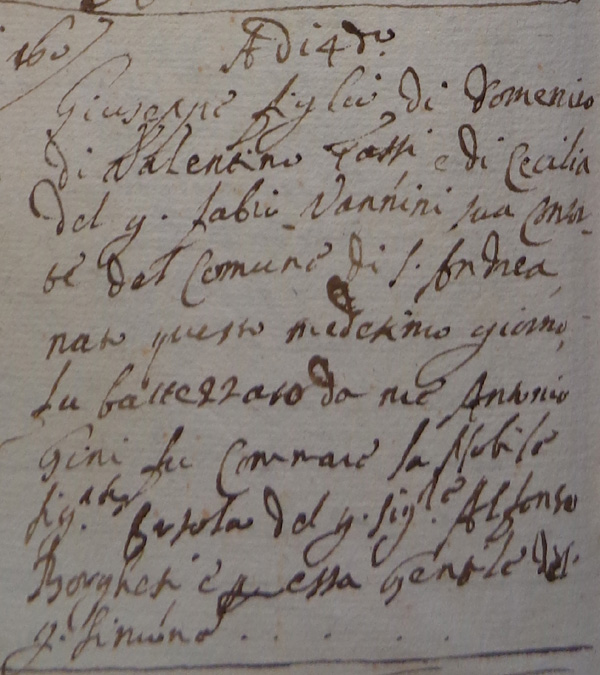 160
A di 4 do.
Giuseppe figlio di Domenico
di Valentino Tassi e di Cecilia
del q. Fabio Vannini sua Consor-
te del Comune di S. Andrea
nato questo medesimo giorno,
fu battezzato da me Antonio
Gini fu Commare la Nobile
Sig.ra del q. Sig.re Alfonso
Borghesi e p essa Gentile del
q. Simone . . . .